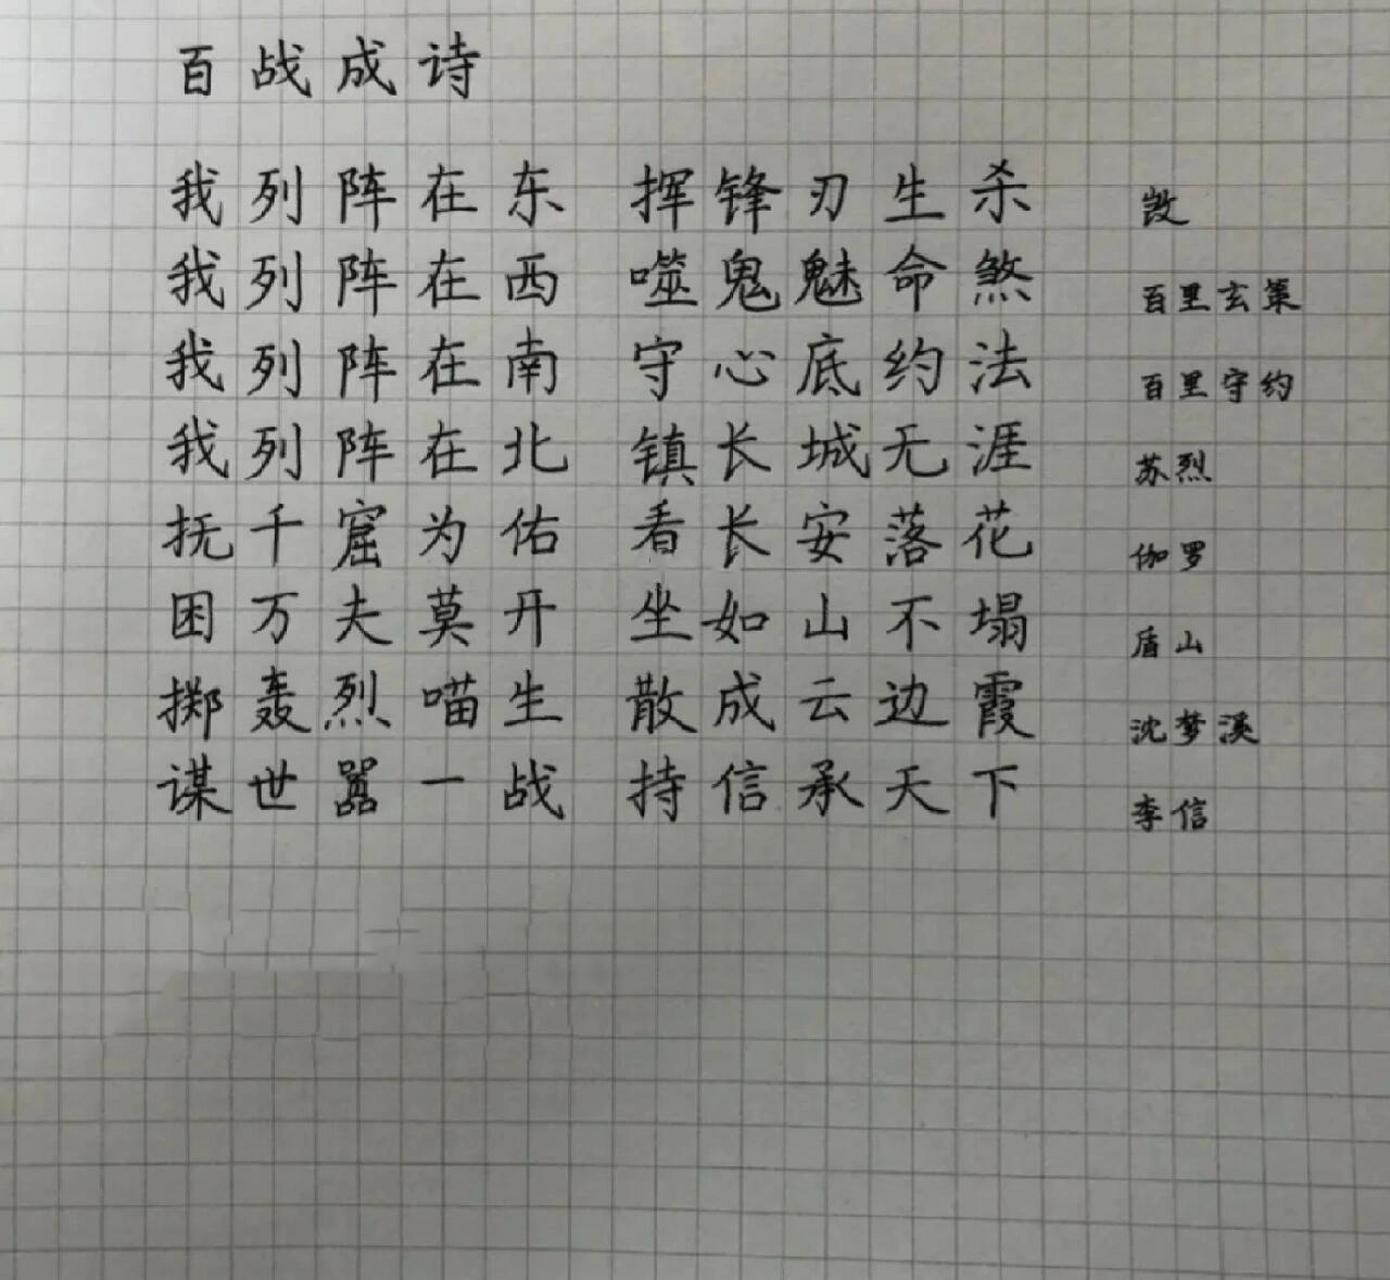 百战成诗
我列阵在东 挥锋刃生杀 铠
我列阵在西 噬鬼魅命煞 百里玄策
我列阵在南 守心底约法 百里守约
我列阵在北 镇长城无涯 苏烈
抚千窟为佑 看长安落花 伽罗
困万夫莫开 坐如山不塌 盾山
掷轰烈喵生 散成云边霞 沈梦溪
谋世嚣一战 持信承天下 李信